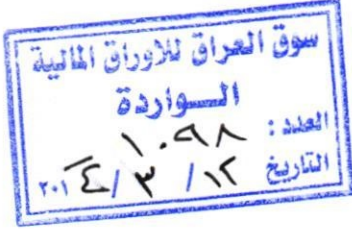 سوق العراق للاوراق المالية
الـــواردة
العدد : ١٠٩٨
التاريخ ١٢ / ٣ / ٢٠١٤